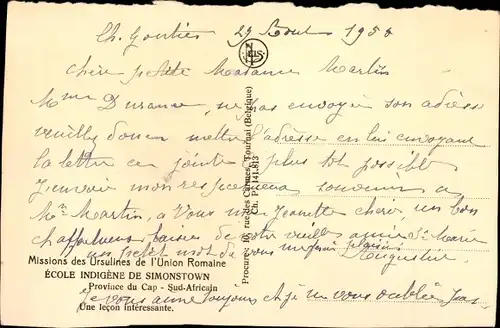 Ch. Gontier 29 Août 1950
Chère petite Madame Martin
Mme Durance, n'a pas envoyé son adresse
veuillez donc mettre l'adresse en lui envoyant
la lettre ci jointe plus tôt possible
J'envoie mon respectueux souvenir a
Mr Martin, a Vous ma Jeanette chérie, un bon
affectueux baiser de votre vieille amie Marie
un petit mot de vous me ferai plaisir
Augustine
Je vous aime toujours et je ne vous oublie pas
Missions des Ursulines de l'Union Romaine
ÉCOLE INDIGÈNE DE SIMONSTOWN
Province du Cap - Sud-Africain
Une leçon intéressante.
NELS
Procure: 60, rue des Carmes, Tournai (Belgique)
Ch. P. 141.813